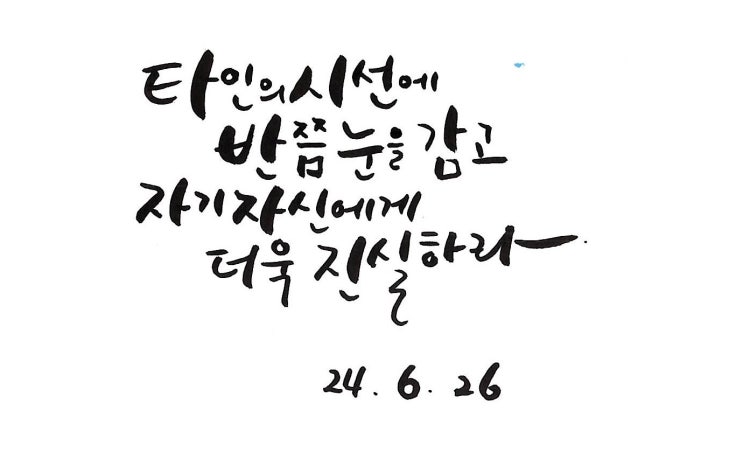 타인의 시선에
반쯤 눈을 감고
자기 자신에게
더욱 진실하라.
24. 6. 26